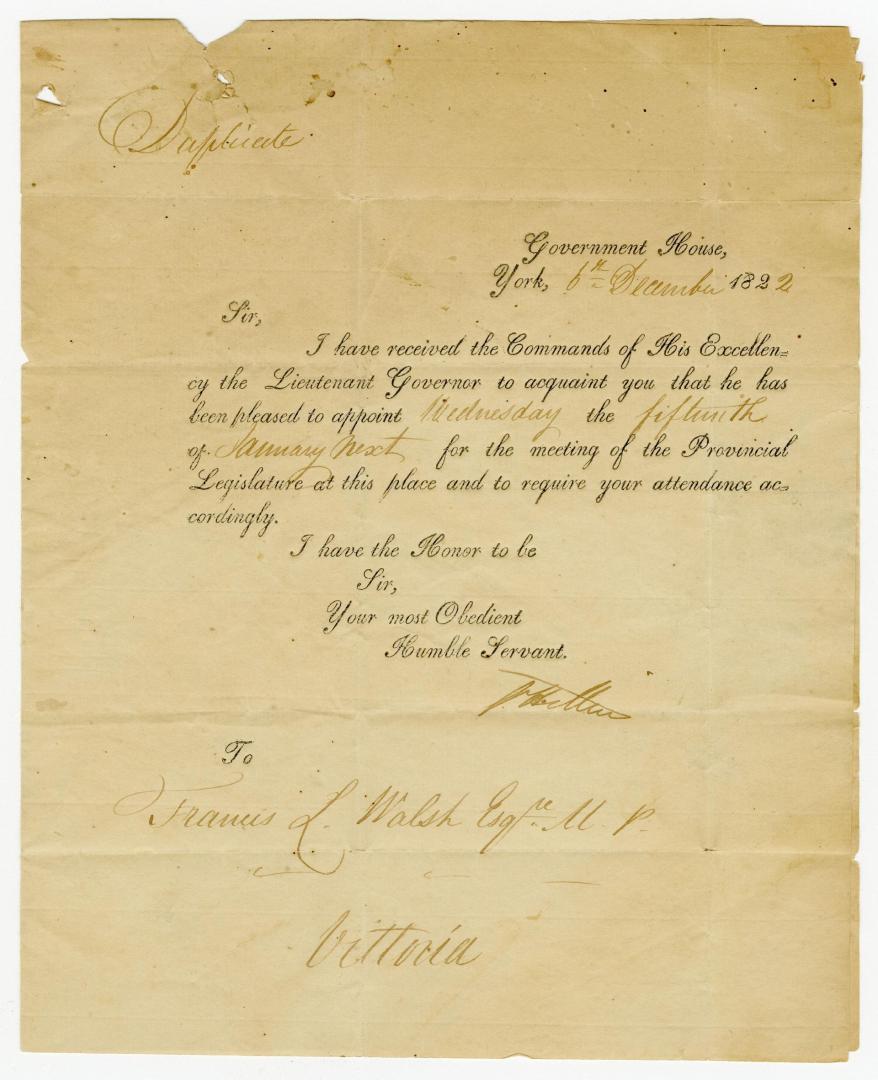 Duplicate
Government House,
York, 6th December 1822
Sir,
I have received the Commands of His Excellen=
cy the Lieutenant Governor to acquaint you that he has
been pleased to appoint Wednesday the fifteenth
of January next for the meeting of the Provincial
Legislature at this place and to require your attendance ac=
cordingly.
I have the Honor to be
Sir,
Your most Obedient
Humble Servant.
To
Francis L. Walsh Esqre. M. P.
Vittoria